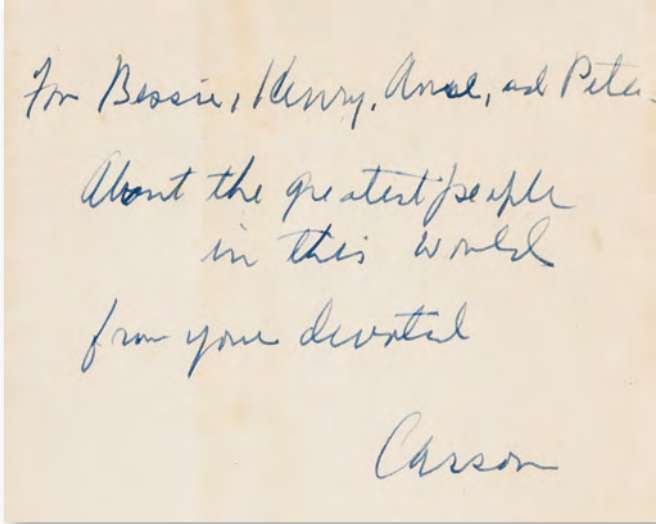 For Bessie, Henry, Anne, and Peter.
About the greatest people
in this world
from your devoted
Carson